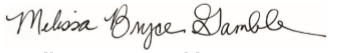 Melissa Bryce Gamble